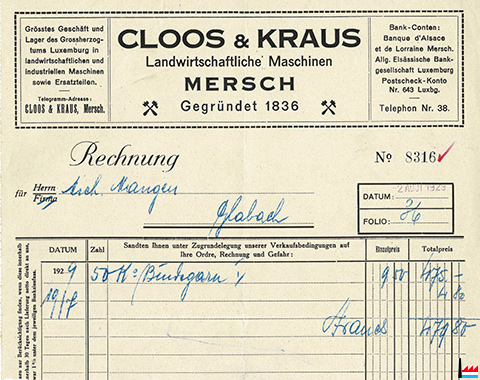 Grösstes Geschäft und
Lager des Grossherzog-
tums Luxemburg in
landwirtschaftlichen und
industriellen Maschinen
sowie Ersatzteilen.
Telegramm-Adresse:
CLOOS & KRAUS, Mersch.
CLOOS & KRAUS
Landwirtschaftliche Maschinen
MERSCH
Gegründet 1836
Bank-Conten:
Banque d'Alsace
et de Lorraine Mersch.
Allg. Elsässische Bank-
gesellschaft Luxemburg
Postscheck-Konto
Nr. 643 Luxbg.
Telephon Nr. 38.
Rechnung
No 8316
für Herrn Firma Mich. Mangen
Glabach
DATUM: 1929
FOLIO: 36
DATUM Zahl Sandten Ihnen unter Zugrundelegung unserer Verkaufsbedingungen auf Ihre Ordre, Rechnung und Gefahr: Einzelpreis Totalpreis
1929 50 Ko Bindegarn 9 50 475.-
19/7 4 80
Francs 479 80